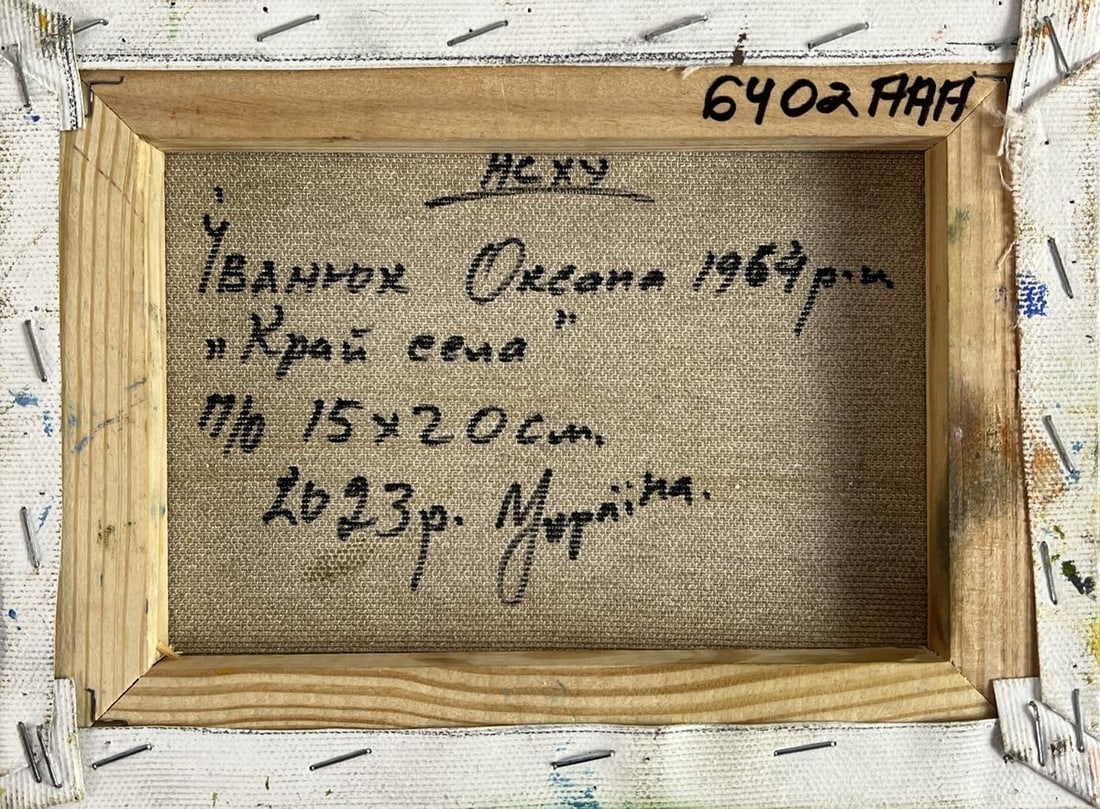 6402AAA
НСХУ
Іванюк Оксана 1964 р.н
"Край села"
п/о 15х20 см.
2023р. Україна.